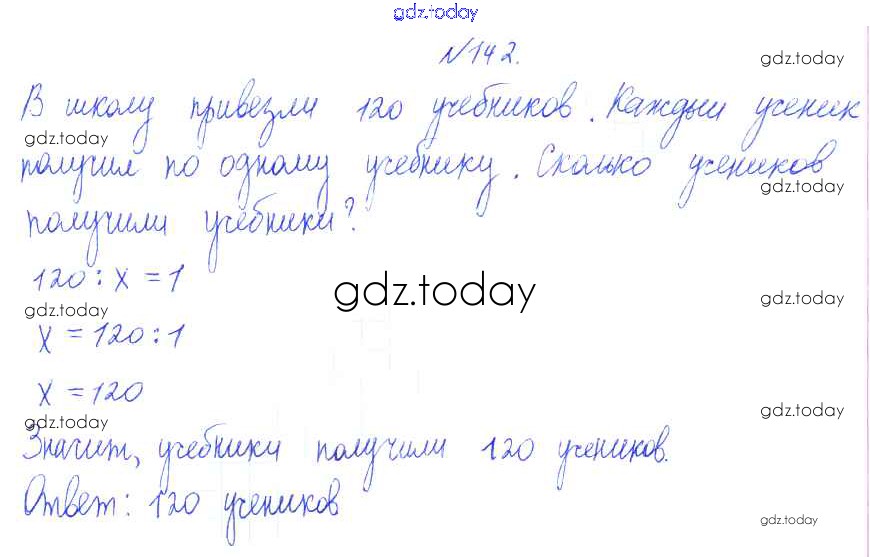 gdz.today
№142.
gdz.today
В школу привезли 120 учебников. Каждый ученик
gdz.today
получил по одному учебнику. Сколько учеников
gdz.today
получили учебники?
120 : x = 1
gdz.today
gdz.today
gdz.today
x = 120 : 1
x = 120
gdz.today
gdz.today
Значит, учебники получили 120 учеников.
Ответ: 120 учеников
gdz.today